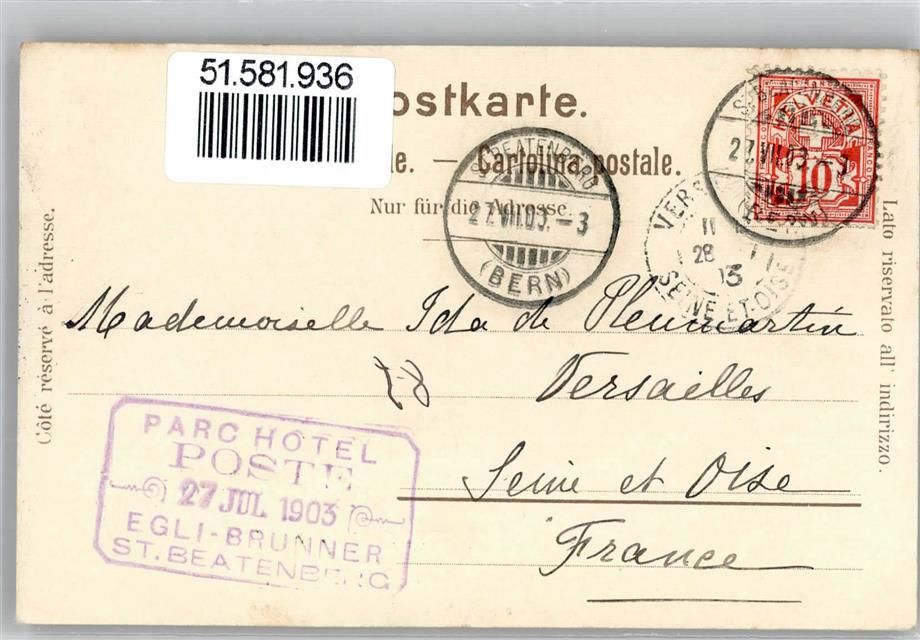 51.581.936
ostkarte.
e. — Cartolina postale.
Nur für die Adresse.
Côté réservé à l'adresse.
Lato riservato all' indirizzo.
HELVETIA
FRANCO
10
27.VII.03.-3
ST. BEATENBERG
27.VII.03.-3
(BERN)
VERS
28
SEINE-ET-OISE
Mademoiselle Ida de Pleumartin
Versailles
Seine et Oise
France
PARC HOTEL
POSTE
27 JUL 1903
EGLI-BRUNNER
ST. BEATENBERG